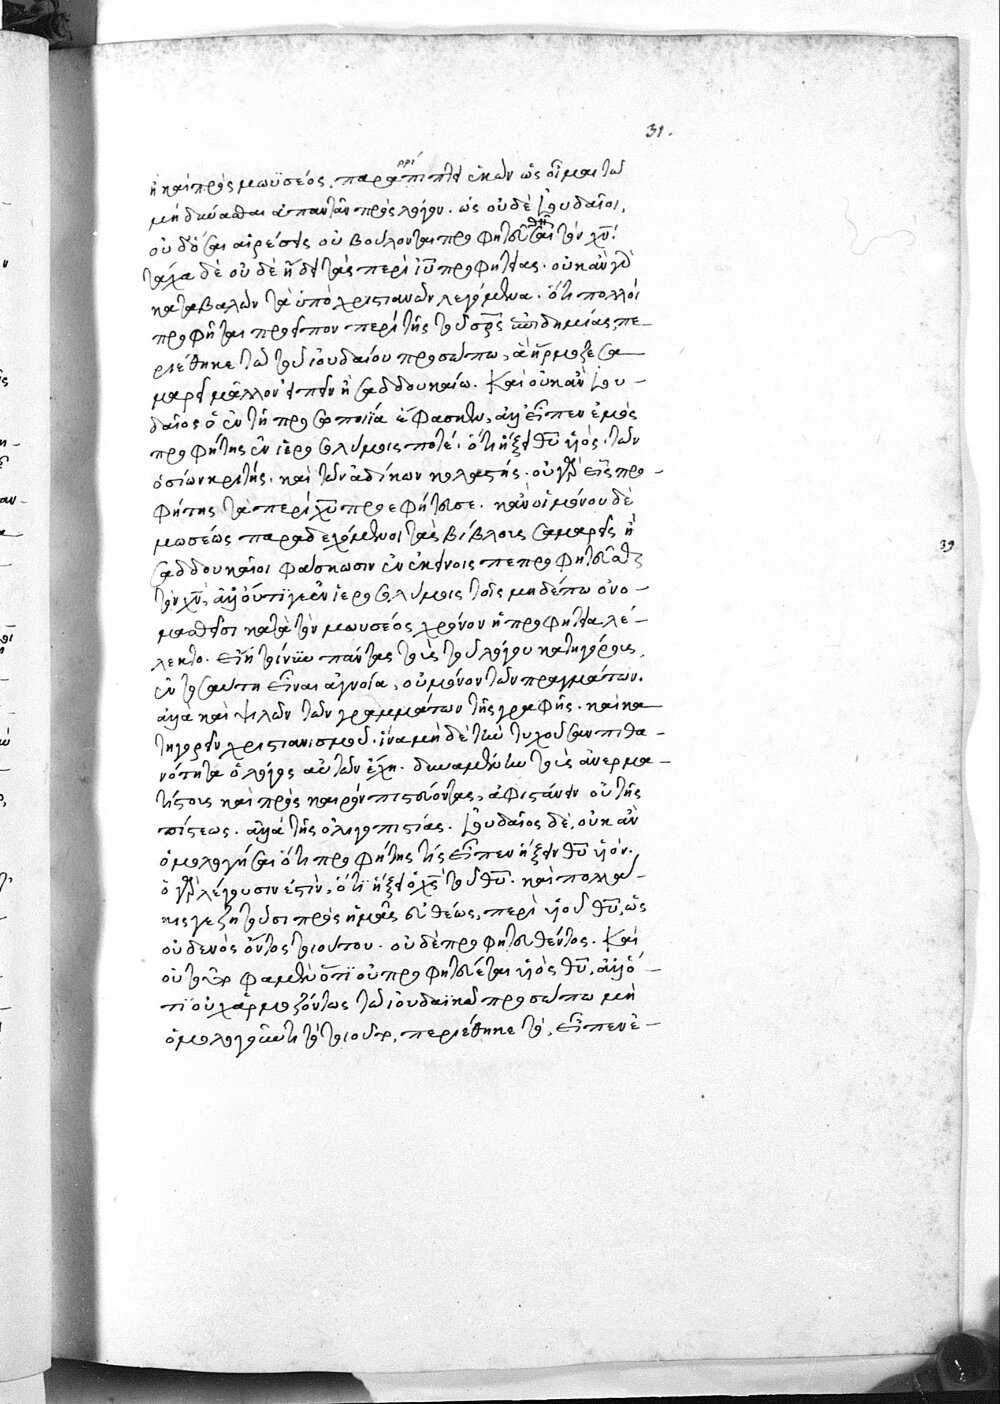 31.
ἢ καὶ πρὸς μωϋσέος. παραπίπτει ἑκὼν ὡς οἶμαι τῶ
μὴ δύνασθαι ἀπαντᾶν πρὸς λόγον. ὡς οὐδὲ ἰουδαῖοι,
οὐδ' ὅσαι αἱρέσεις οὐ βούλονται προφητευθῆναι τὸν χν̅.
τάχα δὲ οὐδὲ ᾔδει τὰς περὶ ιυ̅ προφητείας. οὐκ ἂν γὰρ
καταβαλὼν τὰ ὑπὸ χριστιανῶν λεγόμενα. ὅτι πολλοὶ
προφῆται προεῖπον περὶ τῆς τοῦ σρ̅ς ἐπιδημίας, πε-
ριέθηκε τῶ τοῦ ἰουδαίου προσώπω, ἃ ἥρμοζε σα-
μαρεῖ μᾶλλον εἰπεῖν ἢ σαδδουκαίω. Καὶ οὐκ ἂν ἰου-
δαῖος ὁ ἐν τῆ προσωποποιΐα ἔφασκεν, ἀλλ' εἶπεν ἐμὸς
προφήτης ἐν ἱεροσολύμοις ποτέ. ὅτι ἥξει θυ̅ υἱὸς. τῶν
ὁσίων κριτής. καὶ τῶν ἀδίκων κολαστής. οὐ γὰρ εἷς προ-
φήτης τὰ περὶ χυ̅ προεφήτευσε. κἂν οἱ μόνου δὲ
μωσέως παραδεχόμενοι τὰς βίβλους σαμαρεῖς ἢ
σαδδουκαῖοι φάσκωσιν ἐν ἐκείνοις πεπροφητεῦσθαι
τὸν χν̅, ἀλλ' οὔτι γε ἐν ἱεροσολύμοις τοῖς μηδέπω ὀνο-
μασθεῖσι κατὰ τὸν μωυσέος χρόνον ἡ προφητεία λέ-
λεκτο. εἴη τοίνυν πάντας τοὺς τοῦ λόγου κατηγόρους,
ἐν τοσαύτη εἶναι ἀγνοία, οὐ μόνον τῶν πραγμάτων.
ἀλλὰ καὶ ψιλῶν τῶν γραμμάτων τῆς γραφῆς. καὶ κα
τηγορεῖν χριστιανισμοῦ. ἵνα μὴ δὲ τὴν τυχοῦσαν πιθα-
νότητα ὁ λόγος αὐτῶν ἔχη. δυναμένην τοὺς ἀνερμα-
τίστους καὶ πρὸς καιρὸν πιστεύοντας, ἀφιστάνειν οὐ τῆς
πίστεως. ἀλλὰ τῆς ὀλιγοπιστίας. ἰουδαῖος δὲ, οὐκ ἂν
ὁμολογῆσαι ὅτι προφήτης τίς εἶπεν ἥξειν θυ̅ υἱόν.
ὃ γὰρ λέγουσιν ἐστὶν, ὅτι ἥξει ὁ χς̅ τοῦ θυ̅. καὶ πολλά-
κις γε ζητοῦσι πρὸς ἡμᾶς εὐθέως, περὶ υἱοῦ θυ̅, ὡς
οὐδενὸς ὄντος τοιούτου. οὐδὲ προφητευθέντος. Καὶ
οὐ τοῦτο φαμὲν ὅτι οὐ προφητεύεται υἱὸς θυ̅, ἀλλ' ὅ-
τι οὐχ ἁρμοζόντως τῶ ἰουδαϊκῶ προσώπω μὴ
ὁμολογοῦντι τὸ τοιοῦτο, περιέθηκε τὸ, εἶπεν ἐ-
39